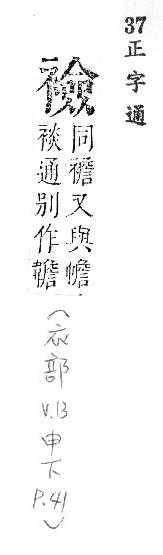 37正字通
襝
同襜又與幨
裧通別作
(衣部 V.13 申下 P.41)